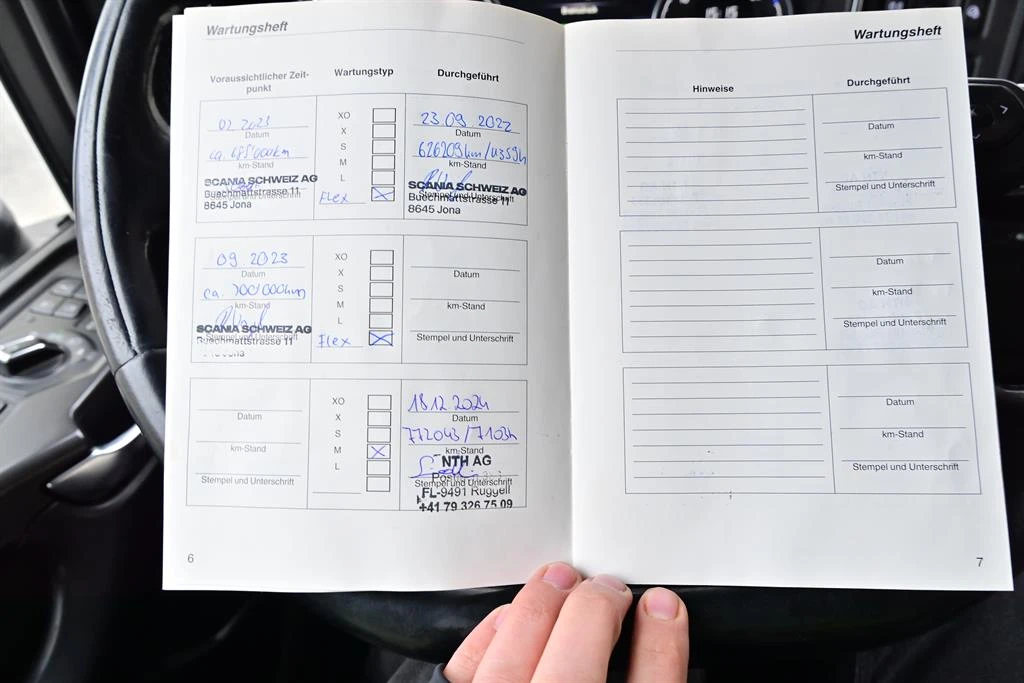 Wartungsheft
Voraussichtlicher Zeit-
punkt
Wartungstyp
Durchgeführt
02.2023
Datum
ca. 685'000km
km-Stand
SCANIA SCHWEIZ AG
Stempel und Unterschrift
Buechmattstrasse 11
8645 Jona
XO
X
S
M
L
Flex
23.09.2022
Datum
626209km/4359h
km-Stand
SCANIA SCHWEIZ AG
Stempel und Unterschrift
Buechmattstrasse 11
8645 Jona
09.2023
Datum
ca. 700'000km
km-Stand
SCANIA SCHWEIZ AG
Stempel und Unterschrift
Buechmattstrasse 11
XO
X
S
M
L
Flex
Datum
km-Stand
Stempel und Unterschrift
Datum
km-Stand
Stempel und Unterschrift
XO
X
S
M
L
18.12.2024
Datum
772043/7103h
km-Stand
NTH AG
Stempel und Unterschrift
FL-9491 Ruggell
+41 79 326 75 09
6
Wartungsheft
Hinweise
Durchgeführt
Datum
km-Stand
Stempel und Unterschrift
Datum
km-Stand
Stempel und Unterschrift
Datum
km-Stand
Stempel und Unterschrift
7